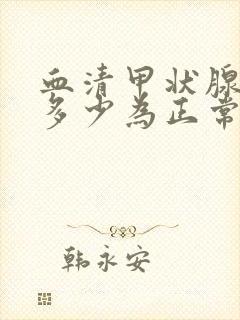 血清甲状腺
多少為正常
韩永安